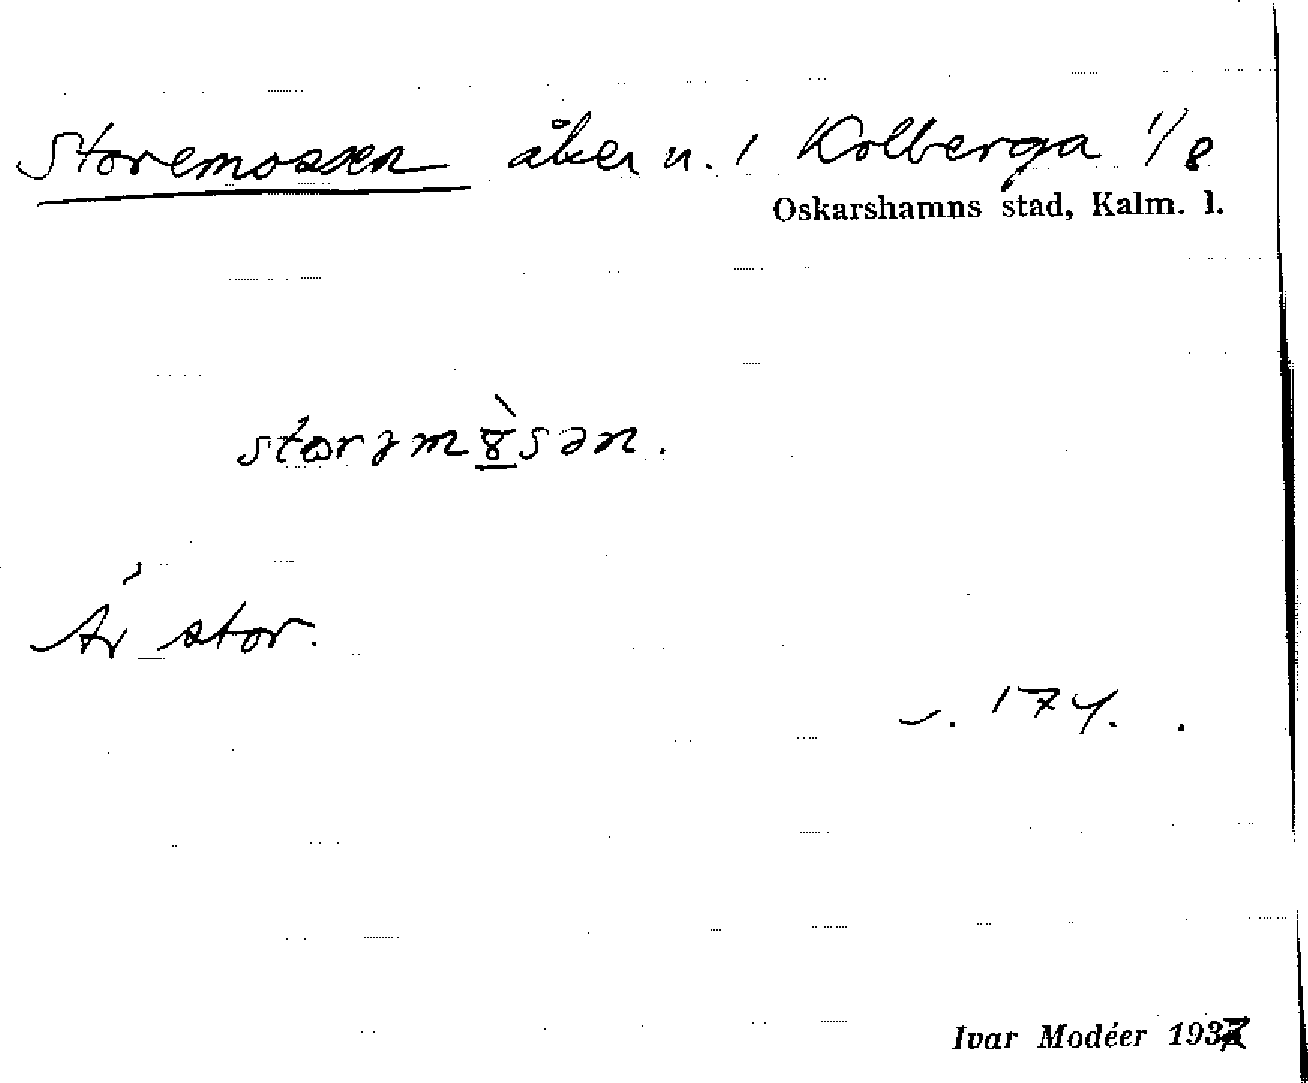 Storemossen åker n. 1 Kolberga 1/8
Oskarshamns stad, Kalm. l.
storəmɤ̀sən.
Är stor.
s. 174.
Ivar Modéer 1937